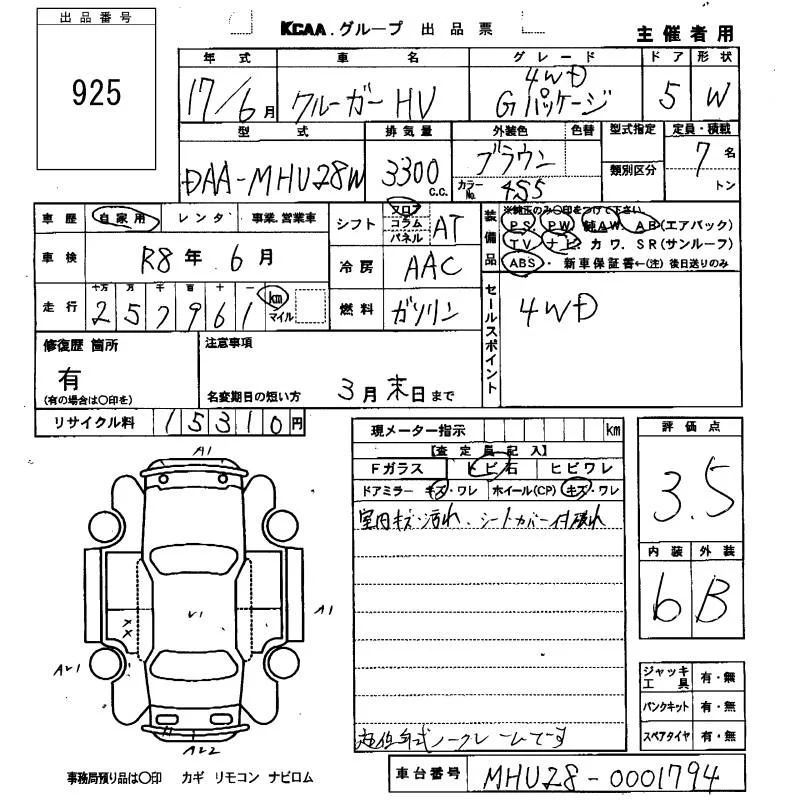 出品番号
925
KCAA.グループ 出品票
主催者用
年式 車名 グレード ドア 形状
17/6月 クルーガーHV 4WD Gパッケージ 5 W
型式 排気量 外装色 色替 型式指定 定員・積載
DAA-MHU28W 3300 C.C. ブラウン 類別区分 7名
カラーNo. 4S5 トン
車歴 自家用 レンタ 事業.営業車
シフト フロア コラム パネル AT
車検 R8年 6月
冷房 AAC
走行 十万 万 千 百 十 一
257961 km マイル
燃料 ガソリン
装備品 ※純正のみ〇印をつけて下さい
PS PW 純AW. AB(エアバック)
TV ナビ. カワ. SR(サンルーフ)
ABS・ 新車保証書←(注) 後日送りのみ
セールスポイント
4WD
修復歴 箇所
有
(有の場合は〇印を)
注意事項
名変期日の短い方 3月末日まで
リサイクル料 15310円
現メーター指示 km
【査定員記入】
Fガラス トビ石 ヒビワレ
ドアミラー キズ・ワレ ホイール(CP) キズ・ワレ
室内キズ・汚れ、シートカバー付破れ
評価点
3.5
内装 外装
6 B
A1
V1
A1
XX
AV1
AV2
ジャッキ工具 有・無
パンクキット 有・無
スペアタイヤ 有・無
ノークレームです
事務局預り品は〇印 カギ リモコン ナビロム
車台番号 MHU28-0001794